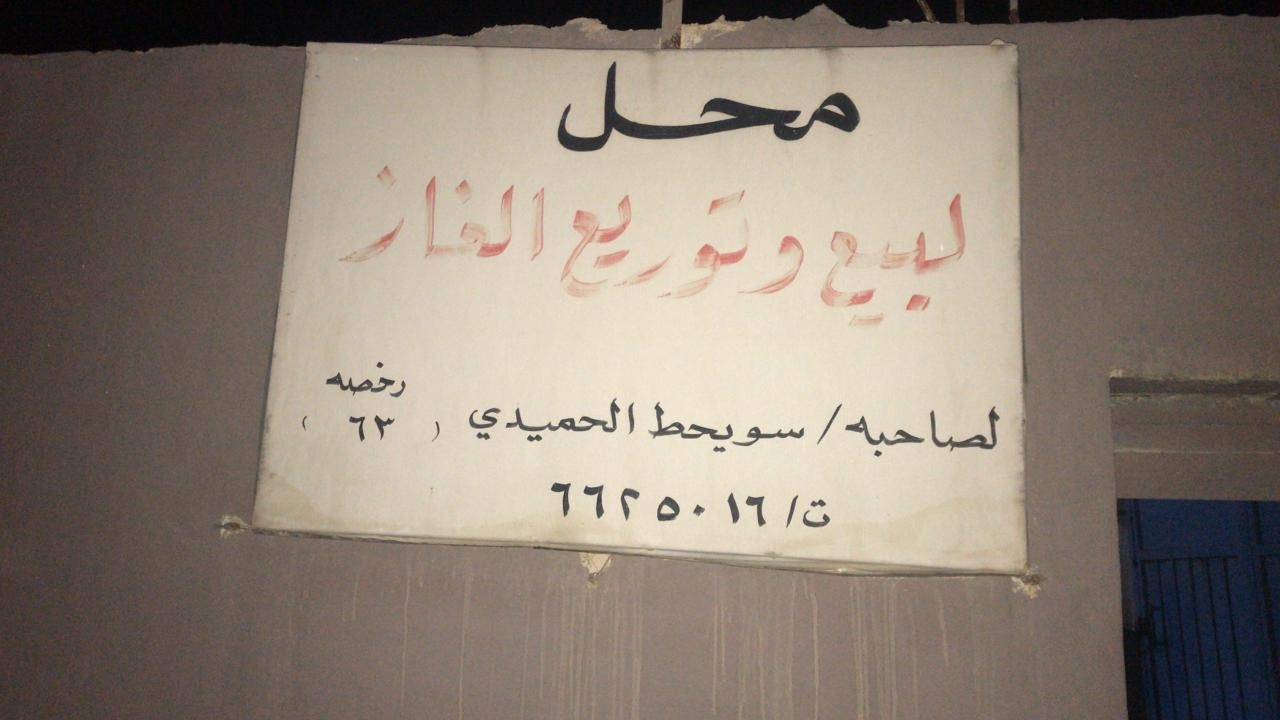 محل
لبيع وتوزيع الغاز
لصاحبه / سويحط الحميدي ( رخصه ٦٣ )
ت/ ٦٦٢٥٠١٦